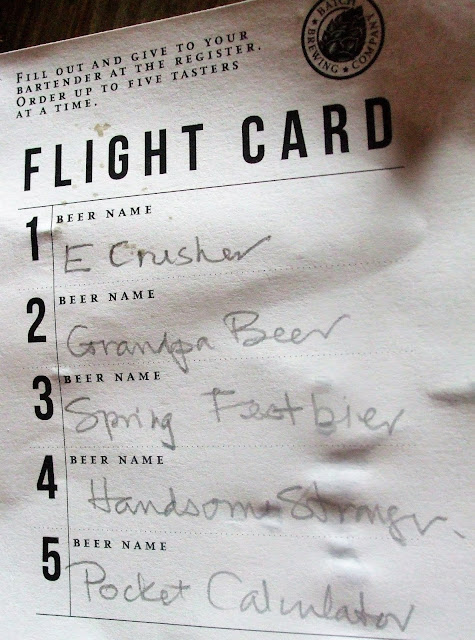 BATCH
BREWING COMPANY
FILL OUT AND GIVE TO YOUR
BARTENDER AT THE REGISTER.
ORDER UP TO FIVE TASTERS
AT A TIME.
FLIGHT CARD
1 BEER NAME
E Crusher
2 BEER NAME
Grandpa Beer
3 BEER NAME
Spring Festbier
4 BEER NAME
Handsome Stranger.
5 BEER NAME
Pocket Calculator